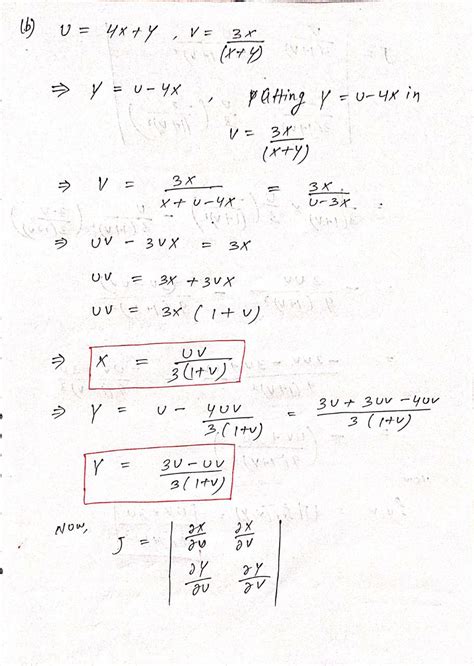 (b) U = 4x+y , V = 3x/(x+y)
⇒ Y = U-4X , putting Y = U-4X in
V = 3X/(X+Y)
⇒ V = 3X/(X+U-4X) = 3X/(U-3X).
⇒ UV - 3VX = 3X
UV = 3X + 3VX
UV = 3X (1+V)
⇒ X = UV/3(1+V)
⇒ Y = U - 4UV/3(1+V) = (3U + 3UV - 4UV)/3(1+V)
Y = (3U-UV)/3(1+V)
Now,
J = | ∂X/∂U ∂X/∂V |
| ∂Y/∂U ∂Y/∂V |